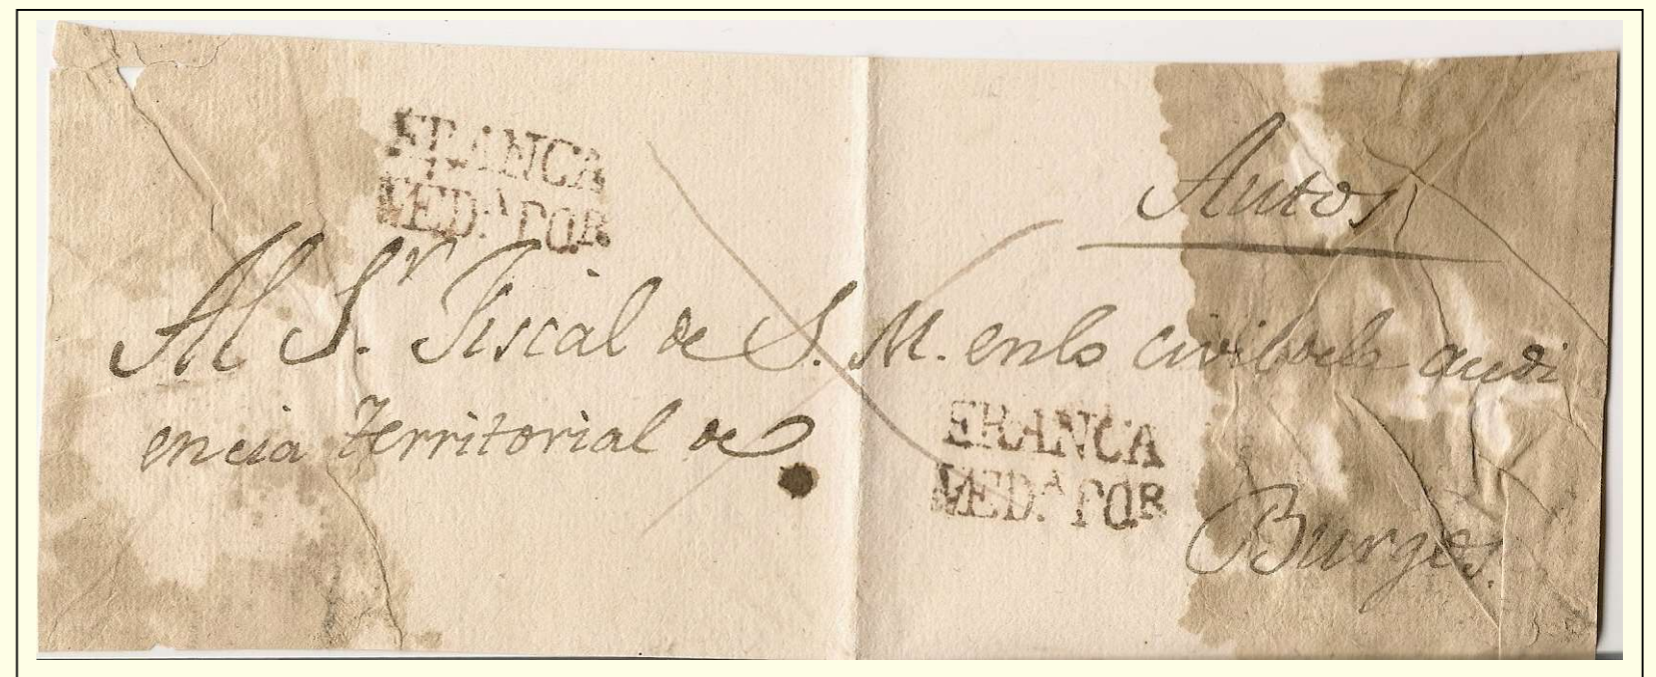 FRANCA
MED.ª POR
Autos
Al S.r Fiscal de S. M. en lo civil de la audi
encia territorial de
FRANCA
MED.ª POR
Burgos.